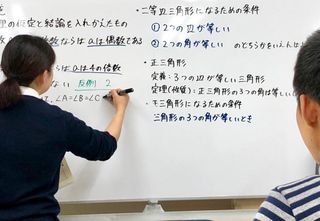 の仮定と結論を入れかえたもの
数ならば aは偶数である
らば aは4の倍数
ない 反例 2
∠A=∠B=∠C
・二等辺三角形になるための条件
① 2つの辺が等しい
② 2つの角が等しい
のどちらかをいえれば
・正三角形
定義:3つの辺が等しい三角形
定理(性質):正三角形の3つの角は等しい
・正三角形になるための条件
三角形の3つの角が等しいとき